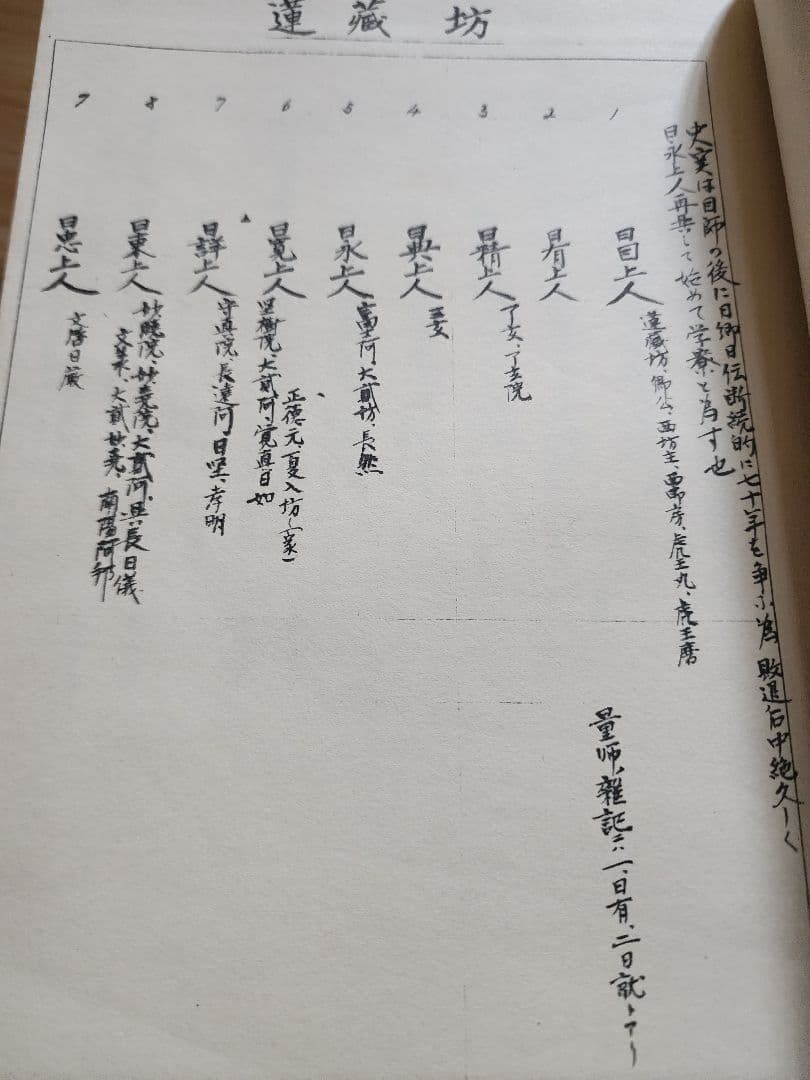 蓮藏坊
史実は目師の後に日郷日伝断続的に七十年を争ふ為 敗退后中絶久しく
日永上人再興して 始めて学寮と為す也
1
日目上人
蓮蔵坊、卿公、西坊主、西御房、虎王丸、虎王磨
量師、雑記ニハ一、日有、二日就トアリ
2
日有上人
3
日精上人
了玄、了玄院
4
日典上人
玄
5
日永上人
富士阿、大貳坊、長
6
日寛上人
正徳元、夏入坊
堅樹院、大貳阿、覚真日如
7
日詳上人
守真院、長運阿 日堅、孝明
8
日東上人
妙院、妙院、大貳阿、長日儀
大貳 南陽阿
9
日忠上人
文唐日厳